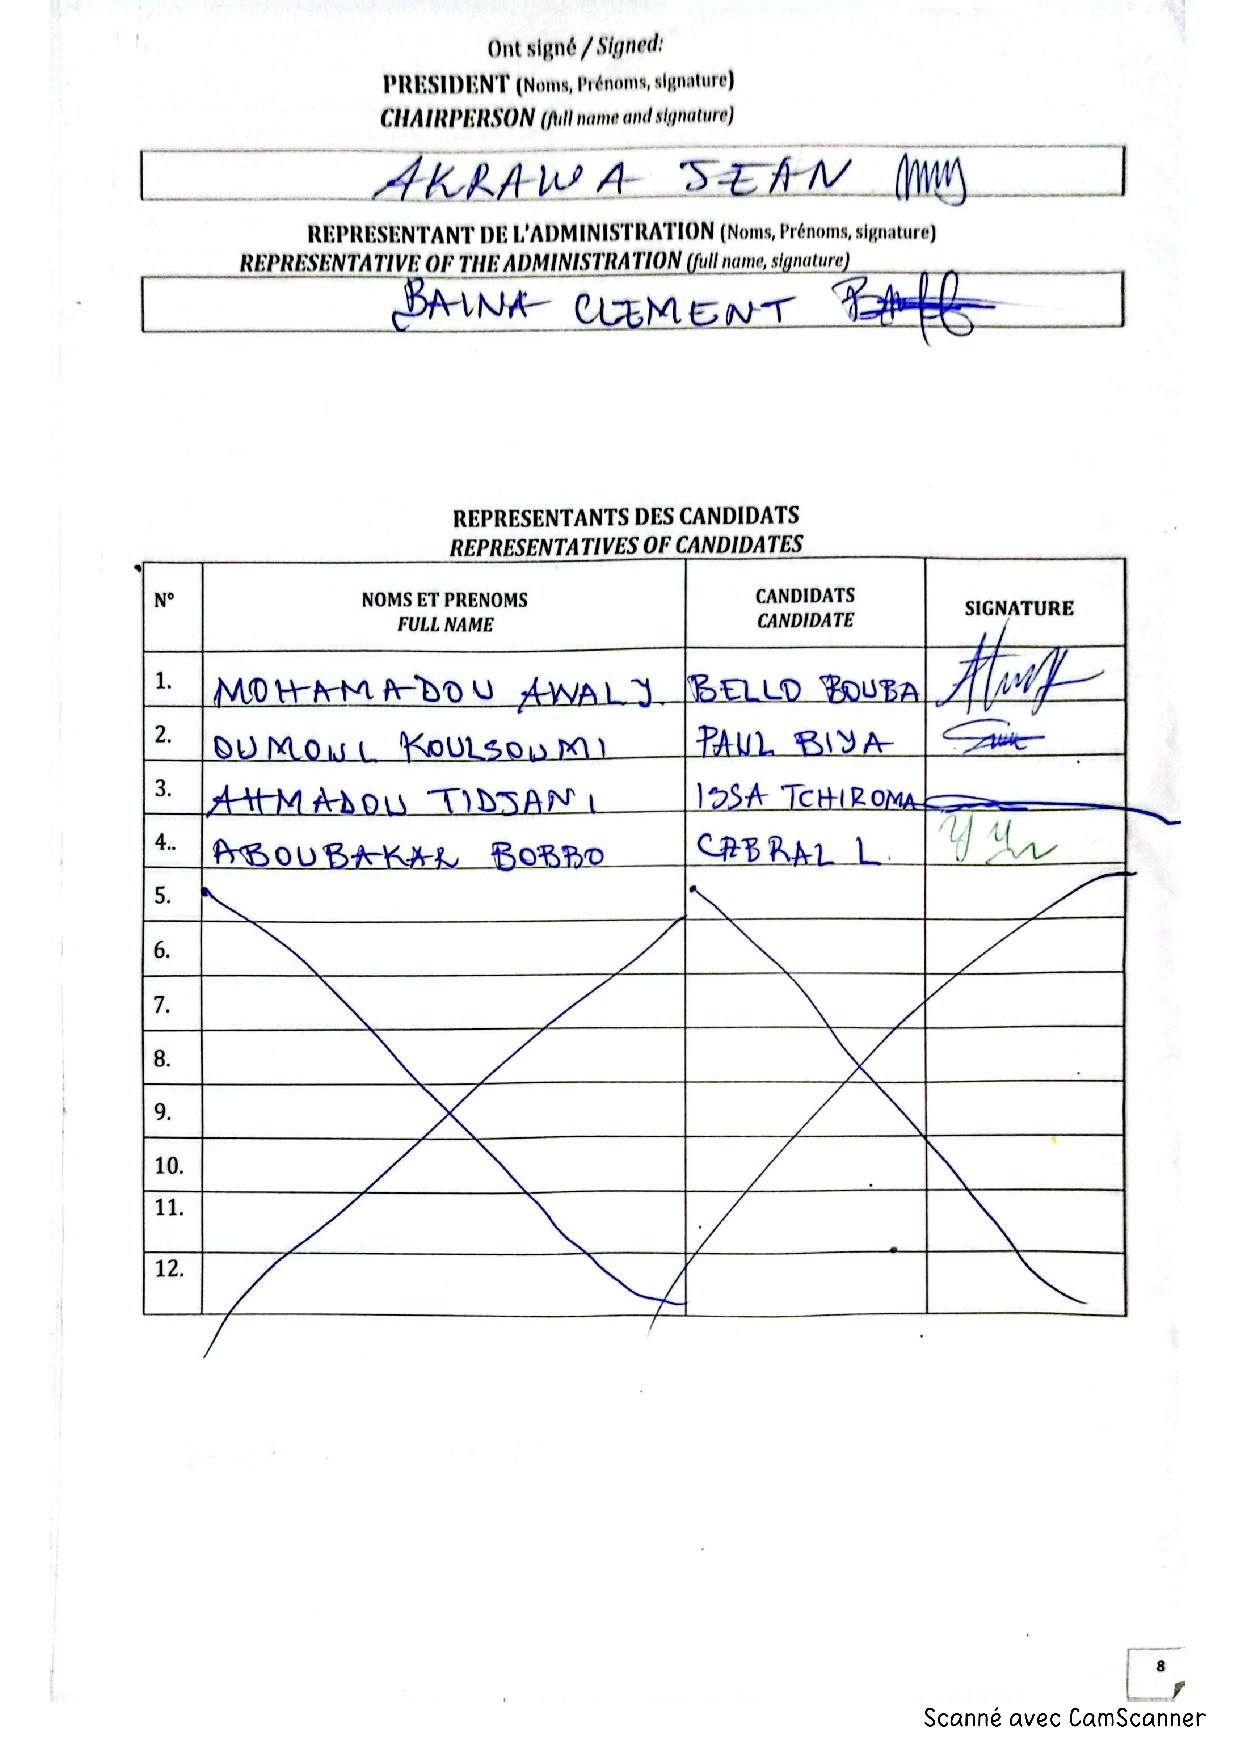 Ont signé / Signed:
PRESIDENT (Noms, Prénoms, signature)
CHAIRPERSON (full name and signature)
AKRAWA JEAN
REPRESENTANT DE L'ADMINISTRATION (Noms, Prénoms, signature)
REPRESENTATIVE OF THE ADMINISTRATION (full name, signature)
BAINA CLEMENT
REPRESENTANTS DES CANDIDATS
REPRESENTATIVES OF CANDIDATES
N° NOMS ET PRENOMS CANDIDATS SIGNATURE
FULL NAME CANDIDATE
1. MOHAMADOU AWALY BELLO BOUBA
2. OUMOUL KOULSOUMI PAUL BIYA
3. AHMADOU TIDJANI ISSA TCHIROMA
4.. ABOUBAKAR BOBBO CABRAL L.
5.
6.
7.
8.
9.
10.
11.
12.
8
Scanné avec CamScanner